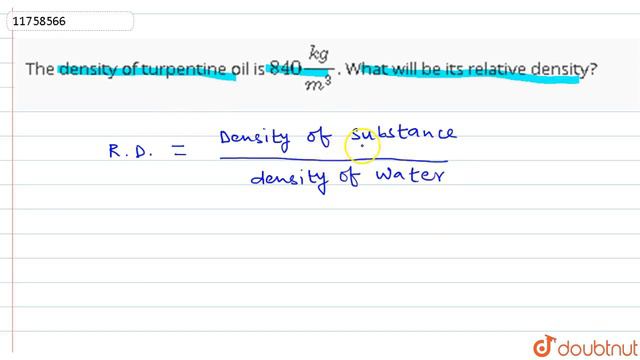 11758566
The density of turpentine oil is 840 kg/m³. What will be its relative density?
R.D. = Density of substance / density of water
doubtnut